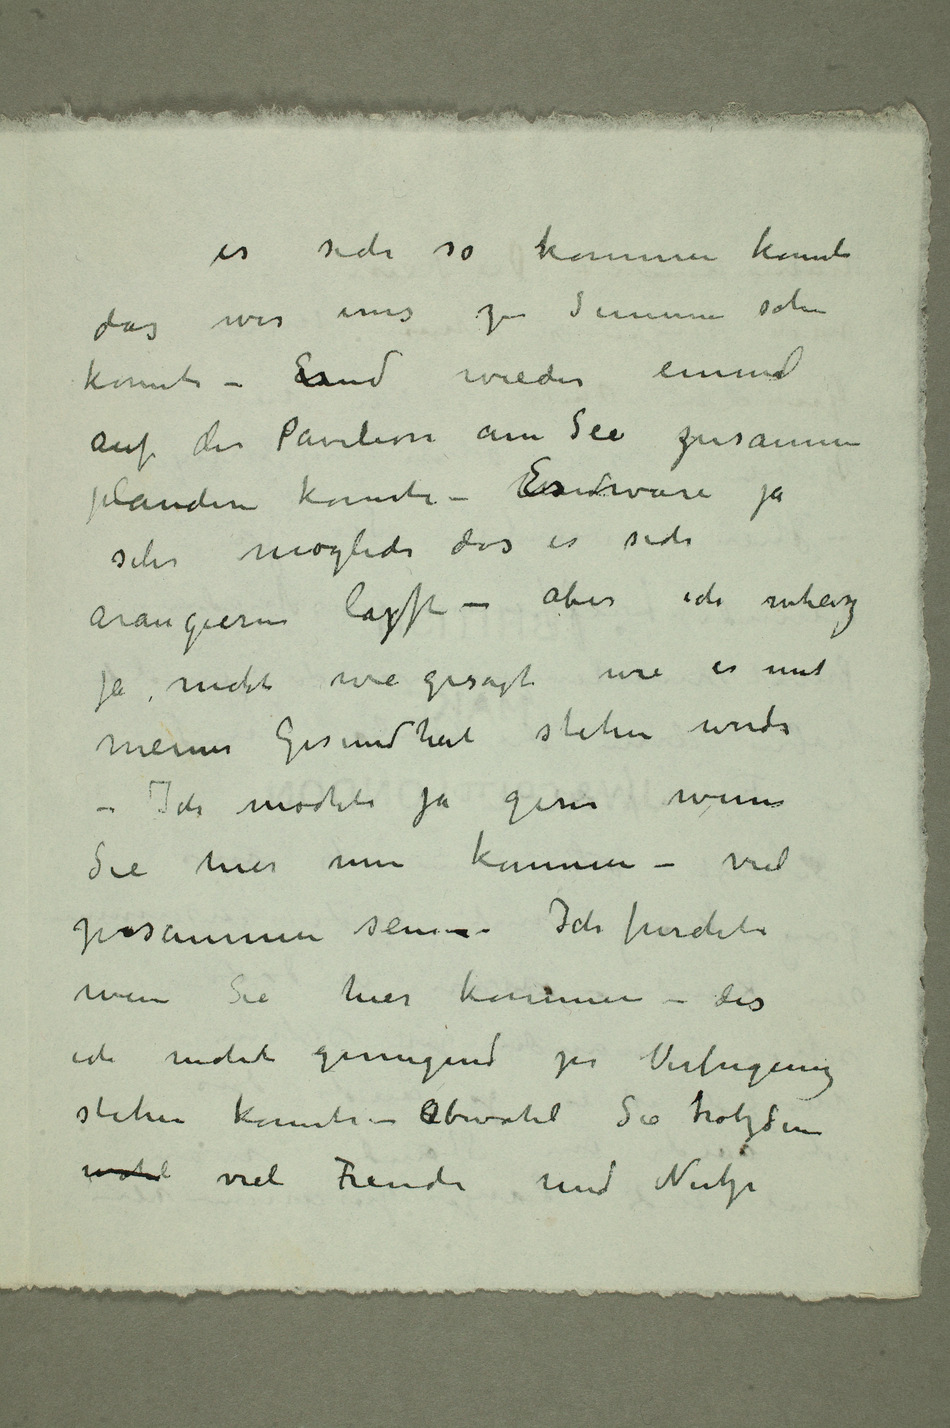 es sich so kommen konnte
das wir uns zu Sommer sehen
konnte – und wieder einmal
auf der Pavilion am See zusammen
plaudern konnte – Es ware ja
sehr moglich das es sich
arangieren lasst – aber ich weis
ja, nicht wie gesagt wie es mit
meiner Gesundheit stehen wird
– Ich mochte ja gern wenn
Sie hier nun kommen – viel
zusammen sein – Ich furchte
wenn Sie hier kommen – das
ich nicht genugend zur Verfugung
stehen konnte – Obwohl Sie trotzdem
wohl viel Freude und Nutze